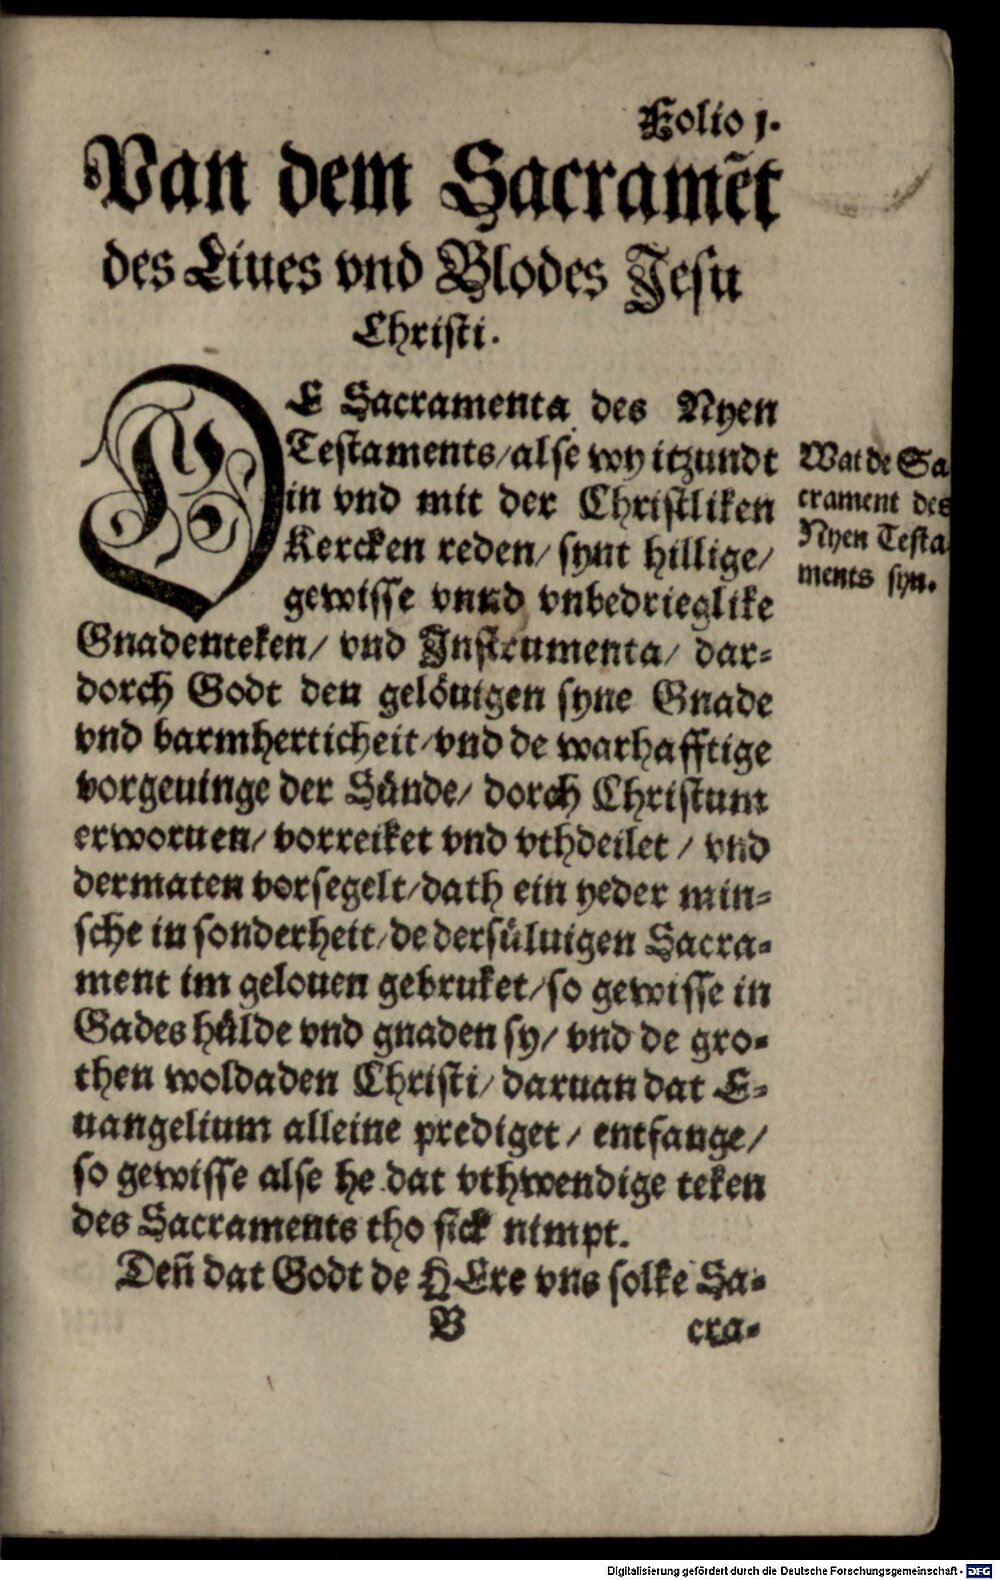 Folio j.
Van dem Sacramēt
des Liues vnd Blodes Jesu
Christi.
DE Sacramenta des Nyen
Testaments/alse wy itzundt
in vnd mit der Christliken
Kercken reden/ synt hillige/
gewisse vnnd vnbedrieglike
Gnadenteken/ vnd Instrumenta/ dar-
dorch Godt den gelöuigen syne Gnade
vnd barmherticheit/vnd de warhafftige
vorgeuinge der Sünde/ dorch Christum
erworuen/ vorreiket vnd vthdeilet / vnd
dermaten vorsegelt/dath ein yeder min-
sche in sonderheit/de dersüluigen Sacra-
ment im gelouen gebruket/so gewisse in
Gades hülde vnd gnaden sy/ vnd de gro-
then woldaden Christi/ daruan dat E-
uangelium alleine prediget/ entfange/
so gewisse alse he dat vthwendige teken
des Sacraments tho sick nimpt.
Deñ dat Godt de HEre vns solke Sa-
B
cra-
Wat de Sa
crament des
Nyen Testa
ments syn.
Digitalisierung gefördert durch die Deutsche Forschungsgemeinschaft - DFG